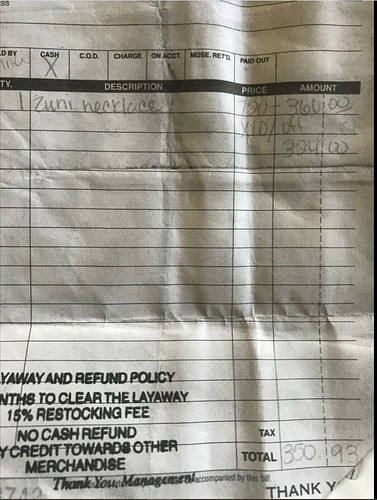 ESS
D BY CASH C.O.D. CHARGE ON ACCT. MDSE. RET'D. PAID OUT
X
TY. DESCRIPTION PRICE AMOUNT
1 Zuni necklace 720- 360 00
X10% off
324 00
YAWAY AND REFUND POLICY
NTHS TO CLEAR THE LAYAWAY
15% RESTOCKING FEE
NO CASH REFUND
Y CREDIT TOWARDS OTHER
MERCHANDISE
TAX
TOTAL 350.93
Thank You, Management
accompanied by this bill.
THANK Y